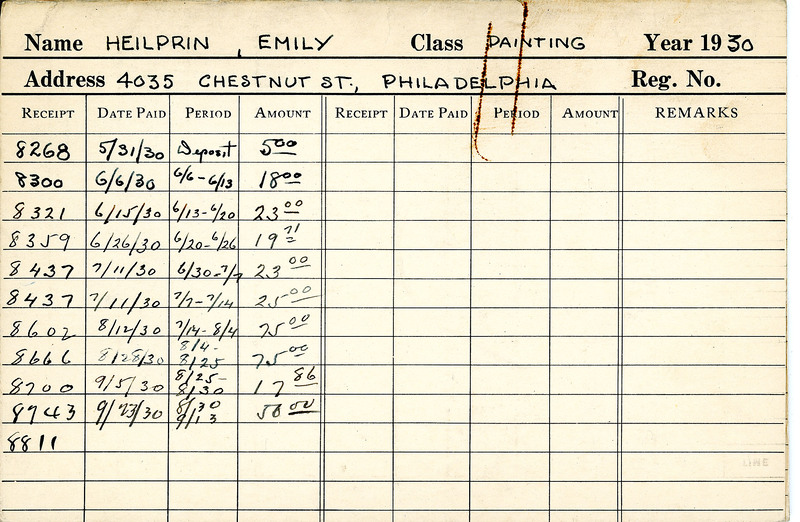 Name HEILPRIN, EMILY Class PAINTING Year 1930
Address 4035 CHESTNUT ST., PHILADELPHIA Reg. No.
RECEIPT DATE PAID PERIOD AMOUNT RECEIPT DATE PAID PERIOD AMOUNT REMARKS
8268 5/31/30 Deposit 5 00
8300 6/6/30 6/6-6/13 18 00
8321 6/15/30 6/13-6/20 23 00
8359 6/26/30 6/20-6/26 19 71
8437 7/11/30 6/30-7/7 23 00
8437 7/11/30 7/7-7/14 25 00
8602 8/12/30 7/14-8/4 75 00
8666 8/28/30 8/4-8/25 75 00
8700 9/5/30 8/25-8/30 17 86
8743 9/23/30 8/30 9/13 50 00
8811
LINE